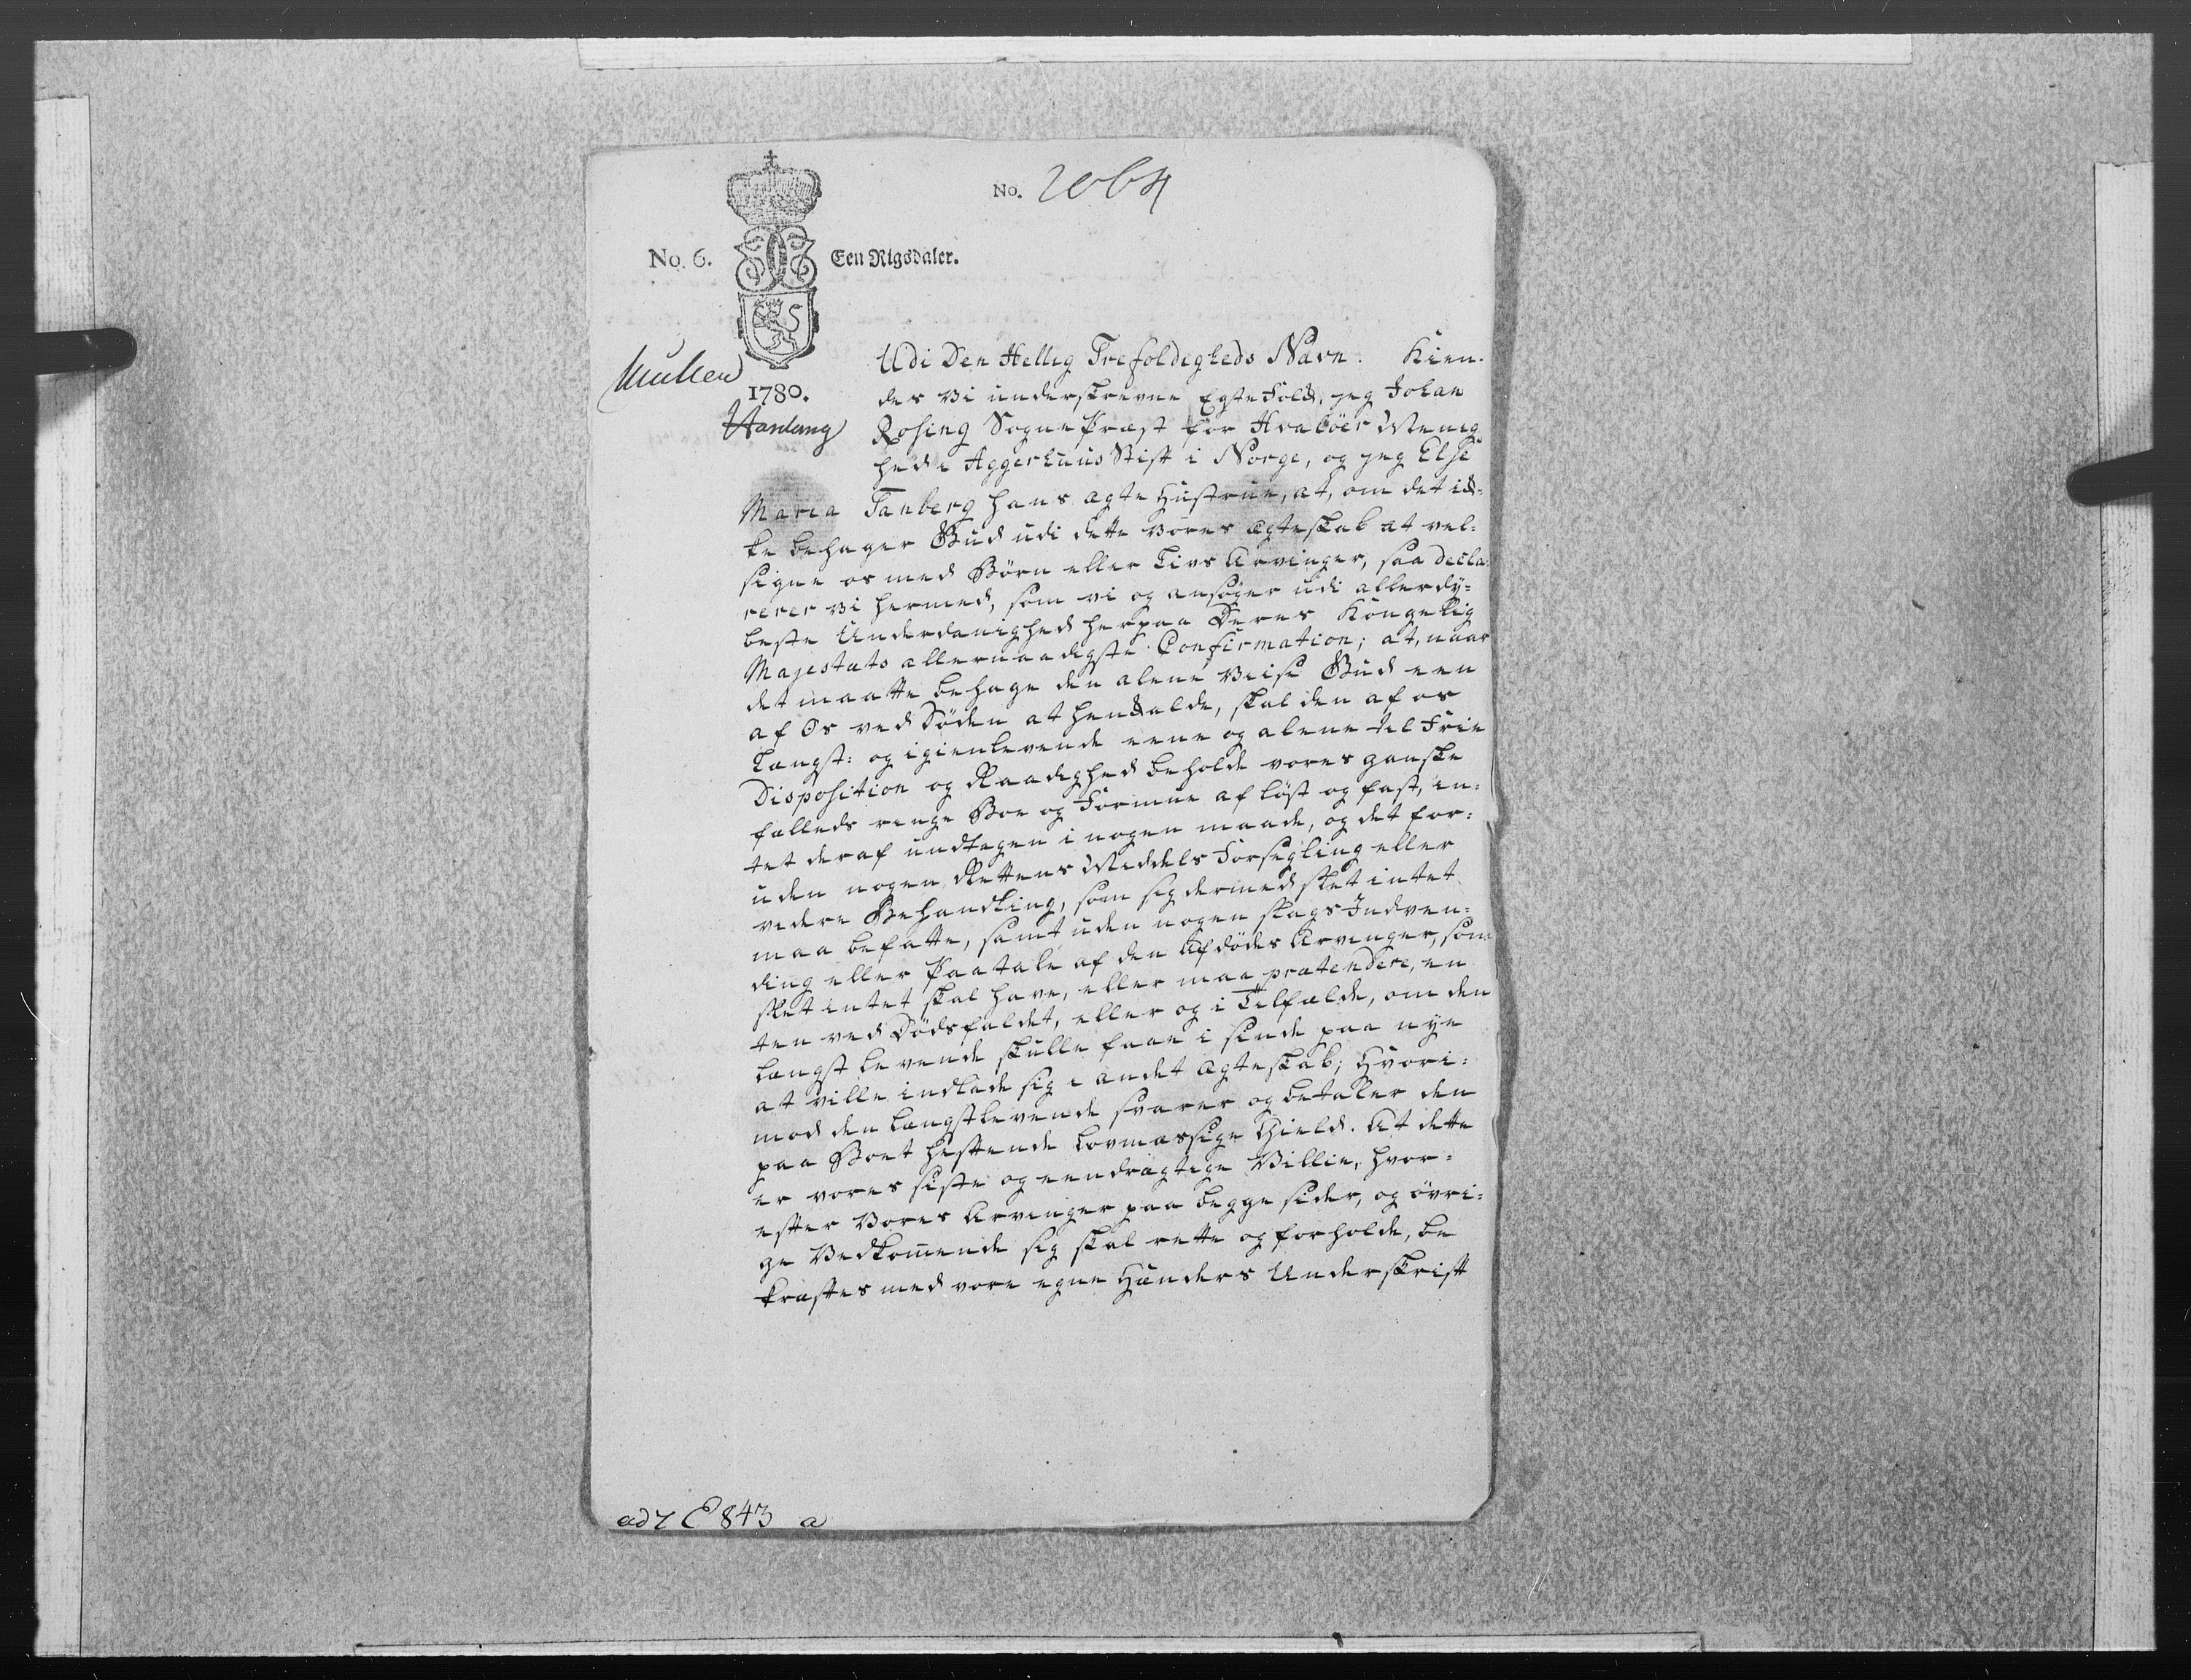 No. 2064
No. 6. Een Rigsdaler.
1780.
Udi Den Hellig Trefoldigheds Navn. Kien-
des Vi underskrevne Egtefolk, jeg Johan
Rosing Sogne Præst for Hvaløer Menig
hed i Aggerhuus Stift i Norge, og jeg Else
Maria Tanberg hans ægte Hustrue, at, om det ik-
ke behager Gud udi dette vores ægteskab at vel-
signe os med Børn eller Livs Arvinger, saa decla-
rerer vi hermed, som vi og ansøger udi allerdy-
beste Underdanighed herpaa Deres Kongelig
Majestæts allernaadigste Confirmation; at, naar
det maatte behage den alene Viise Gud een
af Os ved Døden at henkalde, skal den af os
Længst- og igienlevende eene og alene til Frie
Disposition og Raadighed beholde vores ganske
fælleds ringe Boe og Formue af løst og fast, in-
tet deraf undtagen i nogen maade, og det for-
uden nogen Rettens Middels Forsegling eller
videre Behandling, som sig dermed slet intet
maa befatte, samt uden nogen slags Indven-
ding eller Paatale af den Afdødes Arvinger, som
slet intet skal have, eller maa prætendere, en
ten ved Dødsfaldet, eller og i Tilfælde, om den
længst levende skulle faae i sinde paa nye
at ville indlade sig i andet Ægteskab; Hvori-
mod den længstlevende svarer og betaler den
paa Boet heftende lovmæssige Gield. At dette
er vores siste og eendrægtige Villie, hvor-
efter Vores Arvinger paa begge sider, og øvri-
ge Vedkommende sig skal rette og forholde, be
kræftes med vore egne Hænders Underskrift
ad 7 C 843 a